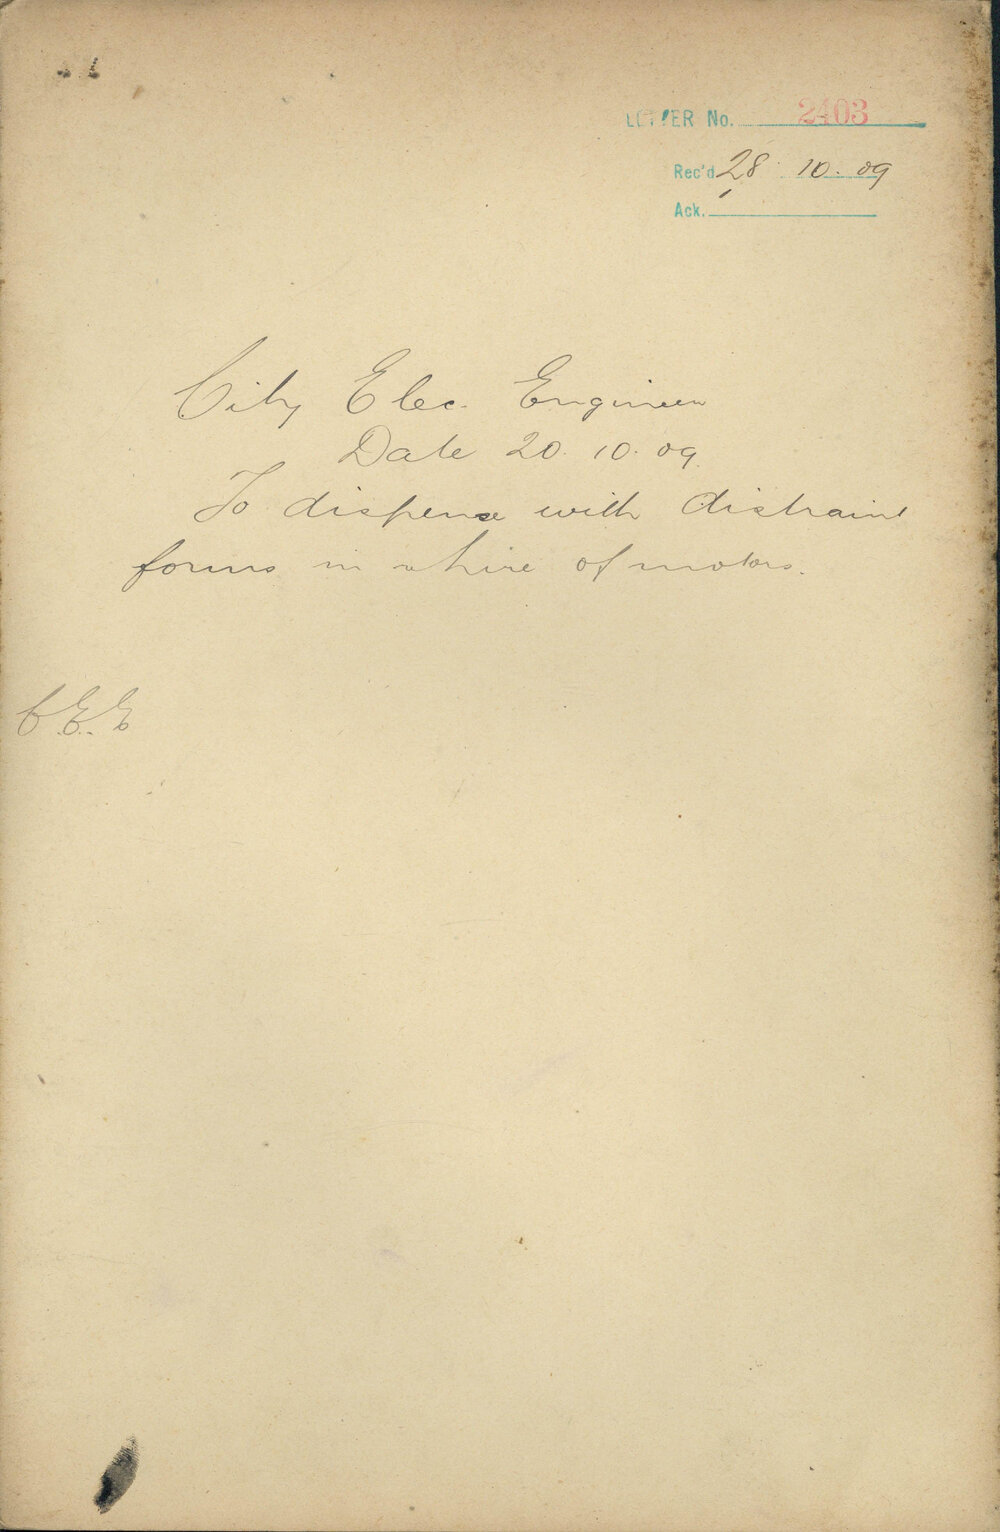 LETTER No. 2403
Rec'd 28. 10. 09
Ack.
City Elec. Engineer
Date 20. 10. 09.
To dispense with distraint
forms in hire of motors.
C.E.E